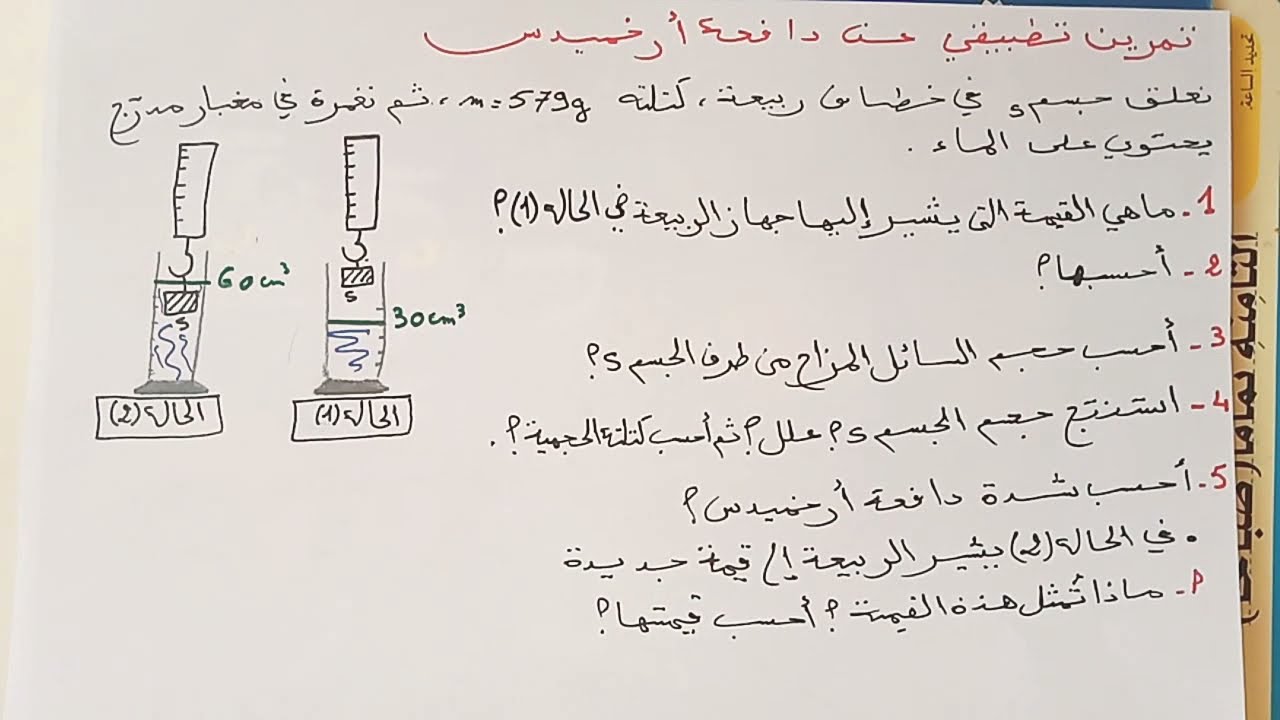 تمرين تطبيقي عن دافعة أرخميدس
نعلق جسم s في خطاف ربيعة، كتلته m=579g، ثم نغمرة في مخبار مدرّج
يحتوي على الماء.
1- ماهي القيمة التي يشير إليها جهاز الربيعة في الحالة (1)؟
2- أحسبها؟
3- أحسب حجم السائل المزاح من طرف الجسم s؟
4- استنتج حجم الجسم s؟ علل؟ ثم أحسب كتلته الحجمية؟.
5- أحسب شدة دافعة أرخميدس؟
• في الحالة (2) يشير الربيعة إلى قيمة جديدة
أ- ماذا تُمثل هذه القيمة؟ أحسب قيمتها؟
60cm³
s
الحالة (2)
s
30cm³
الحالة (1)
تحديد الساعة